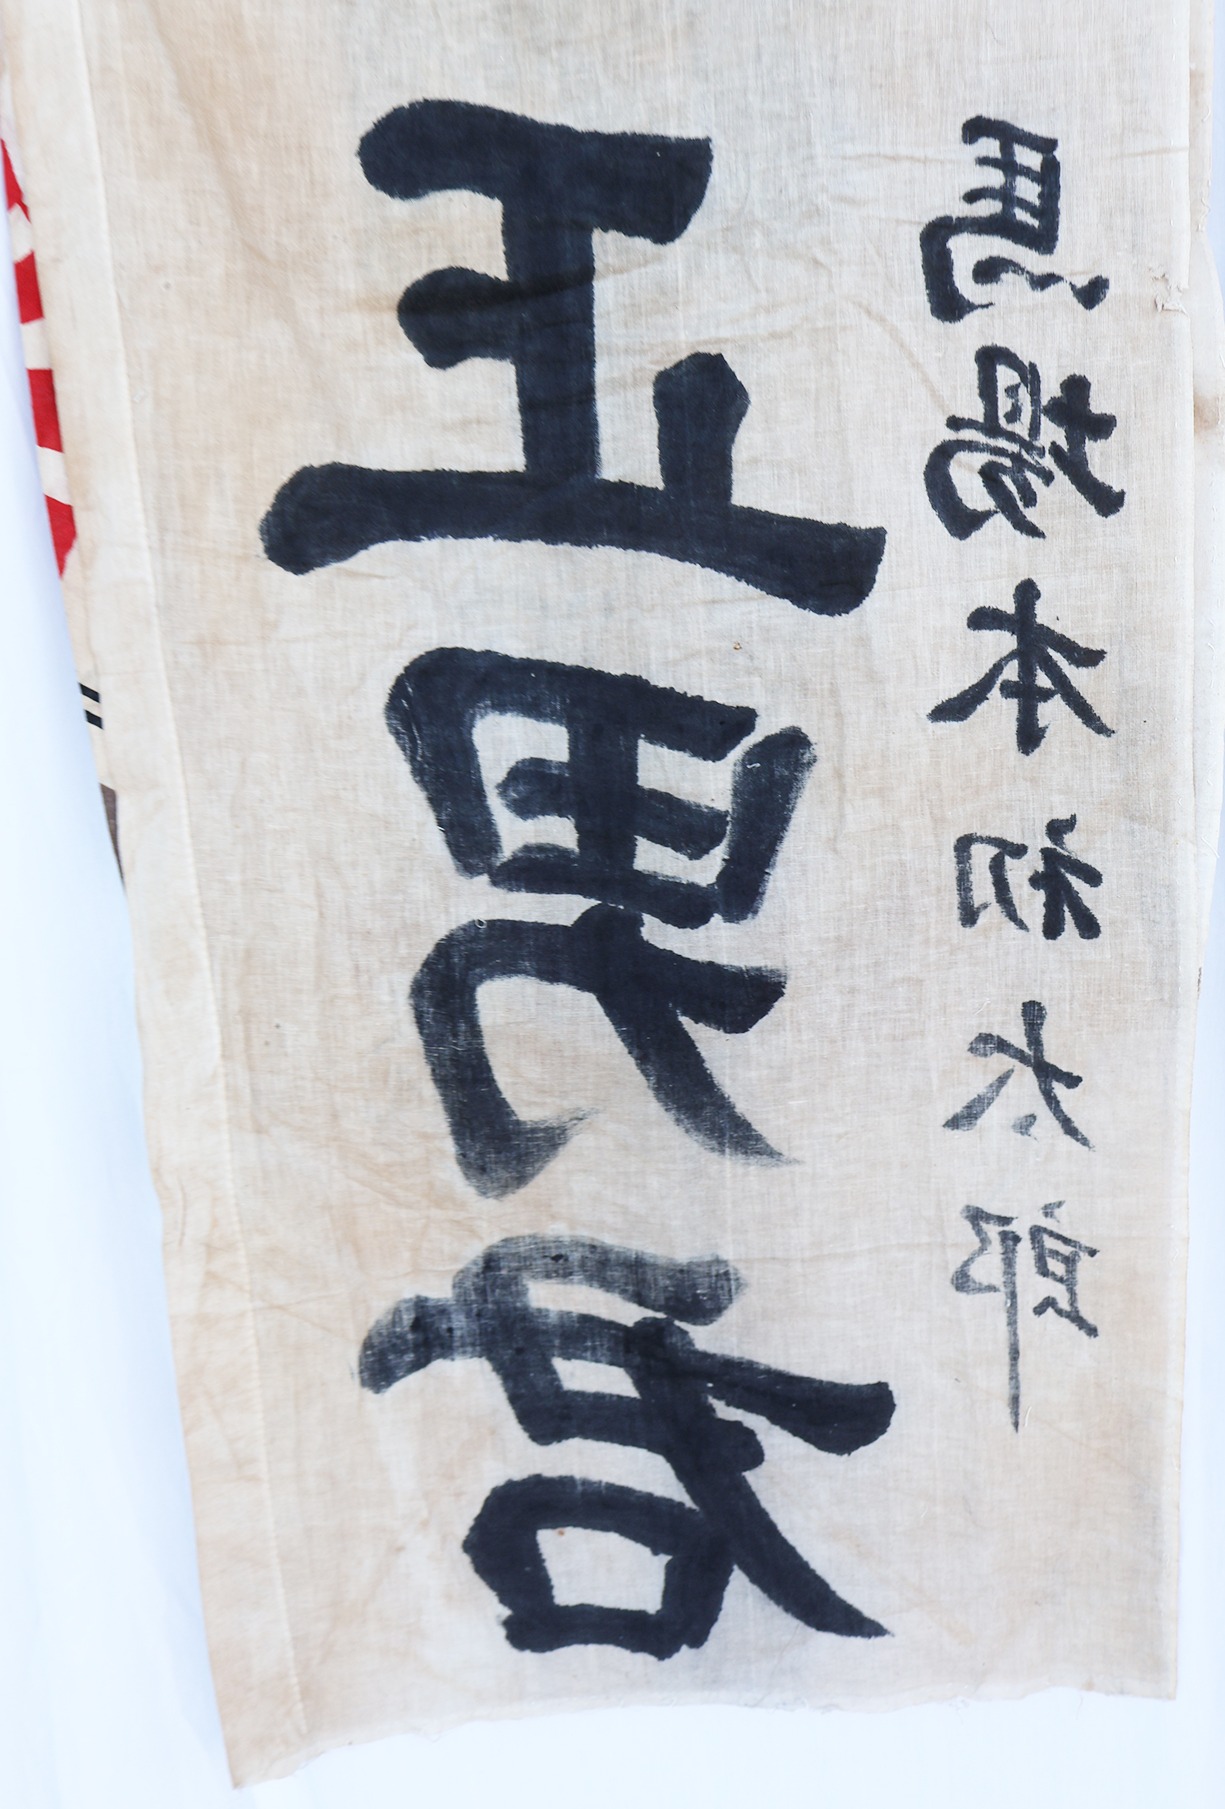 正男君
馬場本初太郎